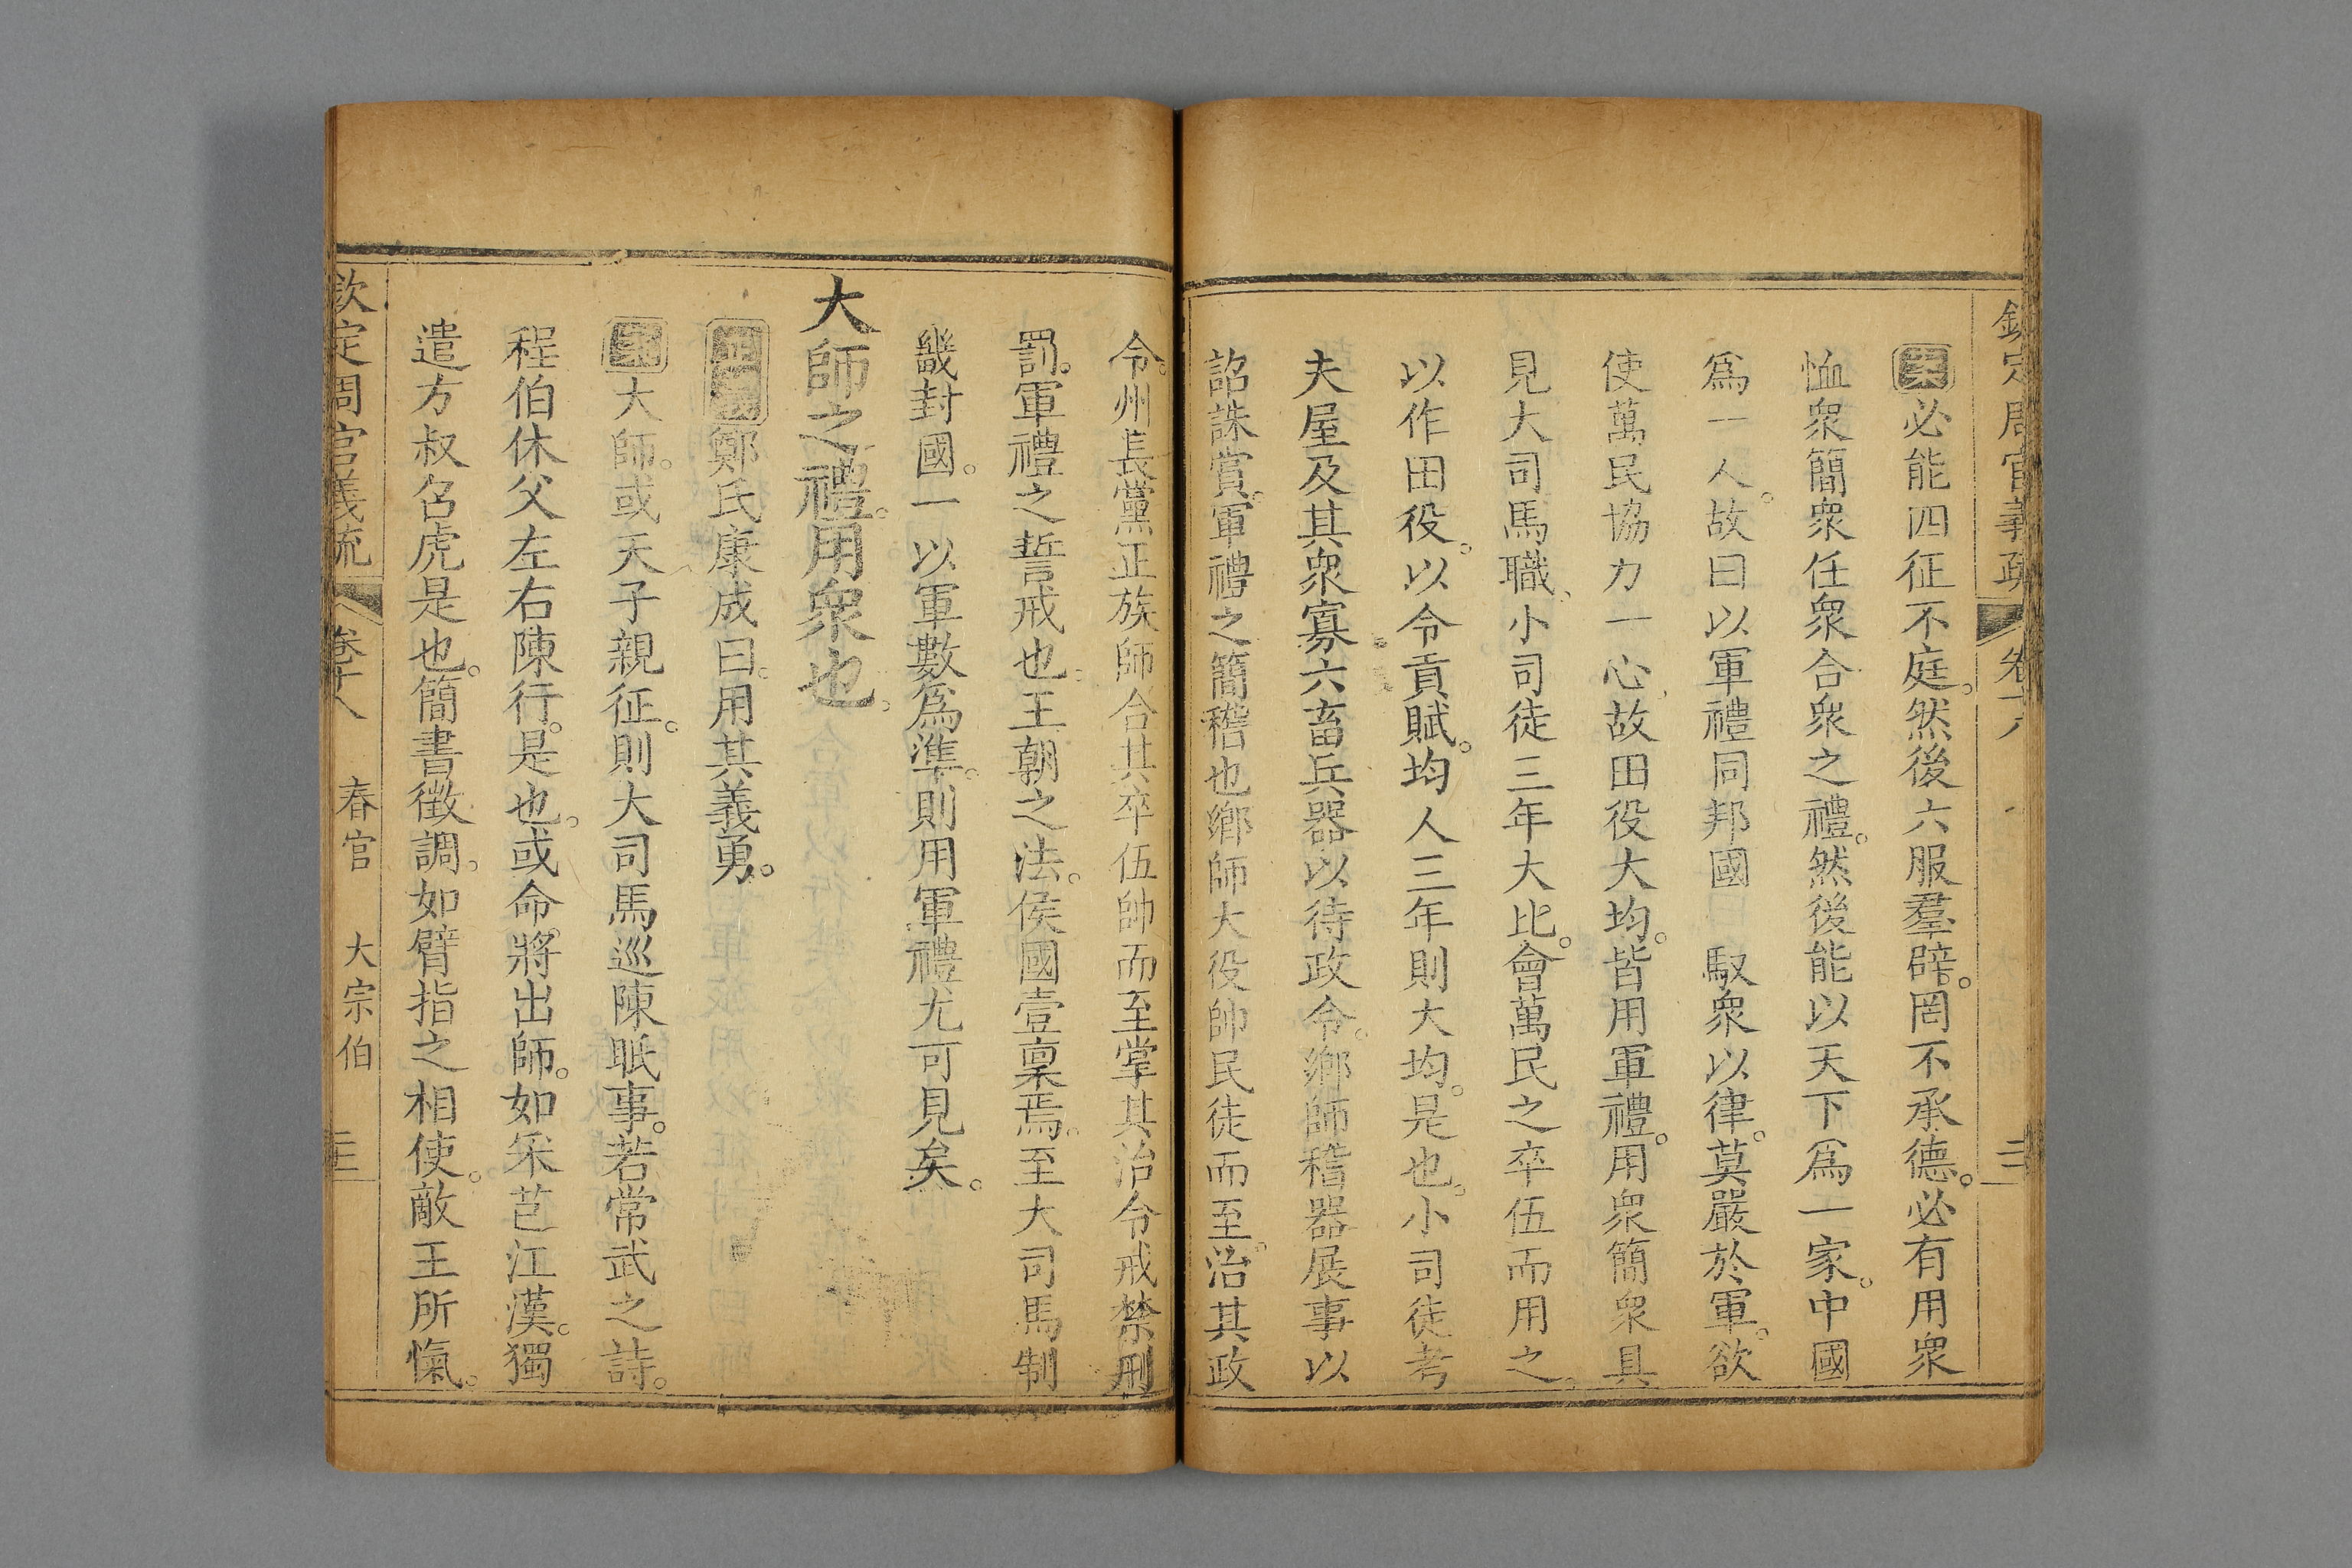 欽定周官義疏 卷十八
必能四征不庭。然後六服羣辟。罔不承德。必有用衆
恤衆簡衆任衆合衆之禮。然後能以天下爲一家。中國
爲一人。故曰以軍禮同邦國 馭衆以律。莫嚴於軍。欲
使萬民協力一心、故田役大均。皆用軍禮。用衆簡衆具
見大司馬職、小司徒三年大比。會萬民之卒伍而用之。
以作田役。以令貢賦。均人三年則大均。是也。小司徒考
夫屋及其衆寡六畜兵器以待政令。鄉師稽器展事以
詔誅賞。軍禮之簡稽也鄉師大役帥民徒而至。治其政
令。州長黨正族師合其卒伍帥而至掌其治令戒禁刑
罰。軍禮之誓戒也。王朝之法。侯國壹稟焉。至大司馬制
畿封國。一以軍數爲準。則用軍禮尤可見矣。
大師之禮。用衆也。
鄭氏康成曰。用其義勇。
大師。或天子親征。則大司馬巡陳眂事。若常武之詩。
程伯休父左右陳行。是也。或命將出師。如采芑江漢。獨
遣方叔召虎是也。簡書徵調。如臂指之相使。敵王所愾。
欽定周官義疏 卷十八 春官 大宗伯